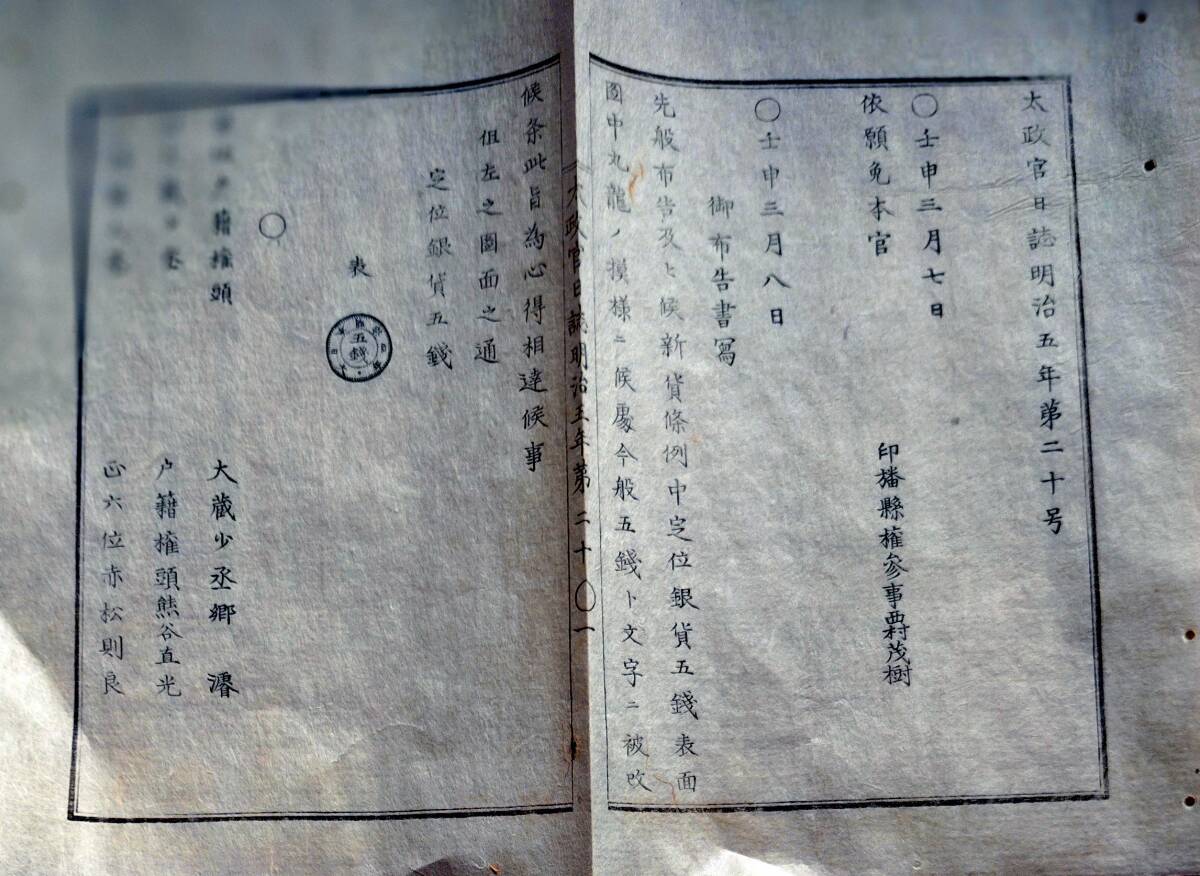 太政官日誌明治五年第二十号
〇壬申三月七日
依願免本官
印旛縣権参事西村茂樹
〇壬申三月八日
御布告書寫
先般布告及ヒ候新貨條例中定位銀貨五錢表面
圖中丸龍ノ摸様ニ候處今般五錢ト文字ニ被改
太政官日誌明治五年第二十〇一
候条此旨為心得相達候事
但左之圖面之通
定位銀貨五錢
表
五錢
〇
戸籍権頭
大蔵少丞郷 濬
戸籍権頭熊谷直光
正六位赤松則良